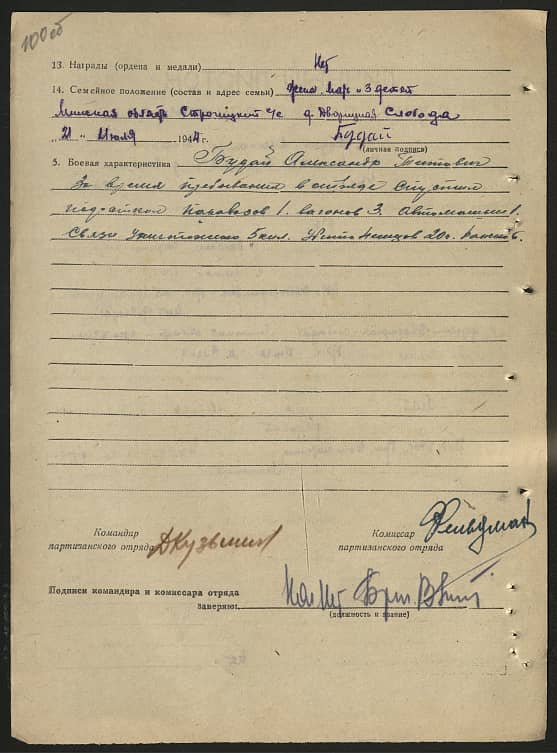 100об
13. Награды (ордена и медали) Нет
14. Семейное положение (состав и адрес семьи) жена мар и 3 детей
Минская область Строчицкий с/с д. Дворицкая Слобода
„ 21 „ Июля 1944 г. Будай
(личная подпись)
5. Боевая характеристика Будай Александр Титович
За время пребывания в отряде спустил
под откос паровозов 1. вагонов 3. Автомашин 1.
Связи уничтожено 5 кил. Убито немцов 20. ранено 6.
Командир
партизанского отряда ДКузьмин
Комиссар
партизанского отряда Фельдман
Подписи командира и комиссара отряда
заверяю:
(должность и звание)